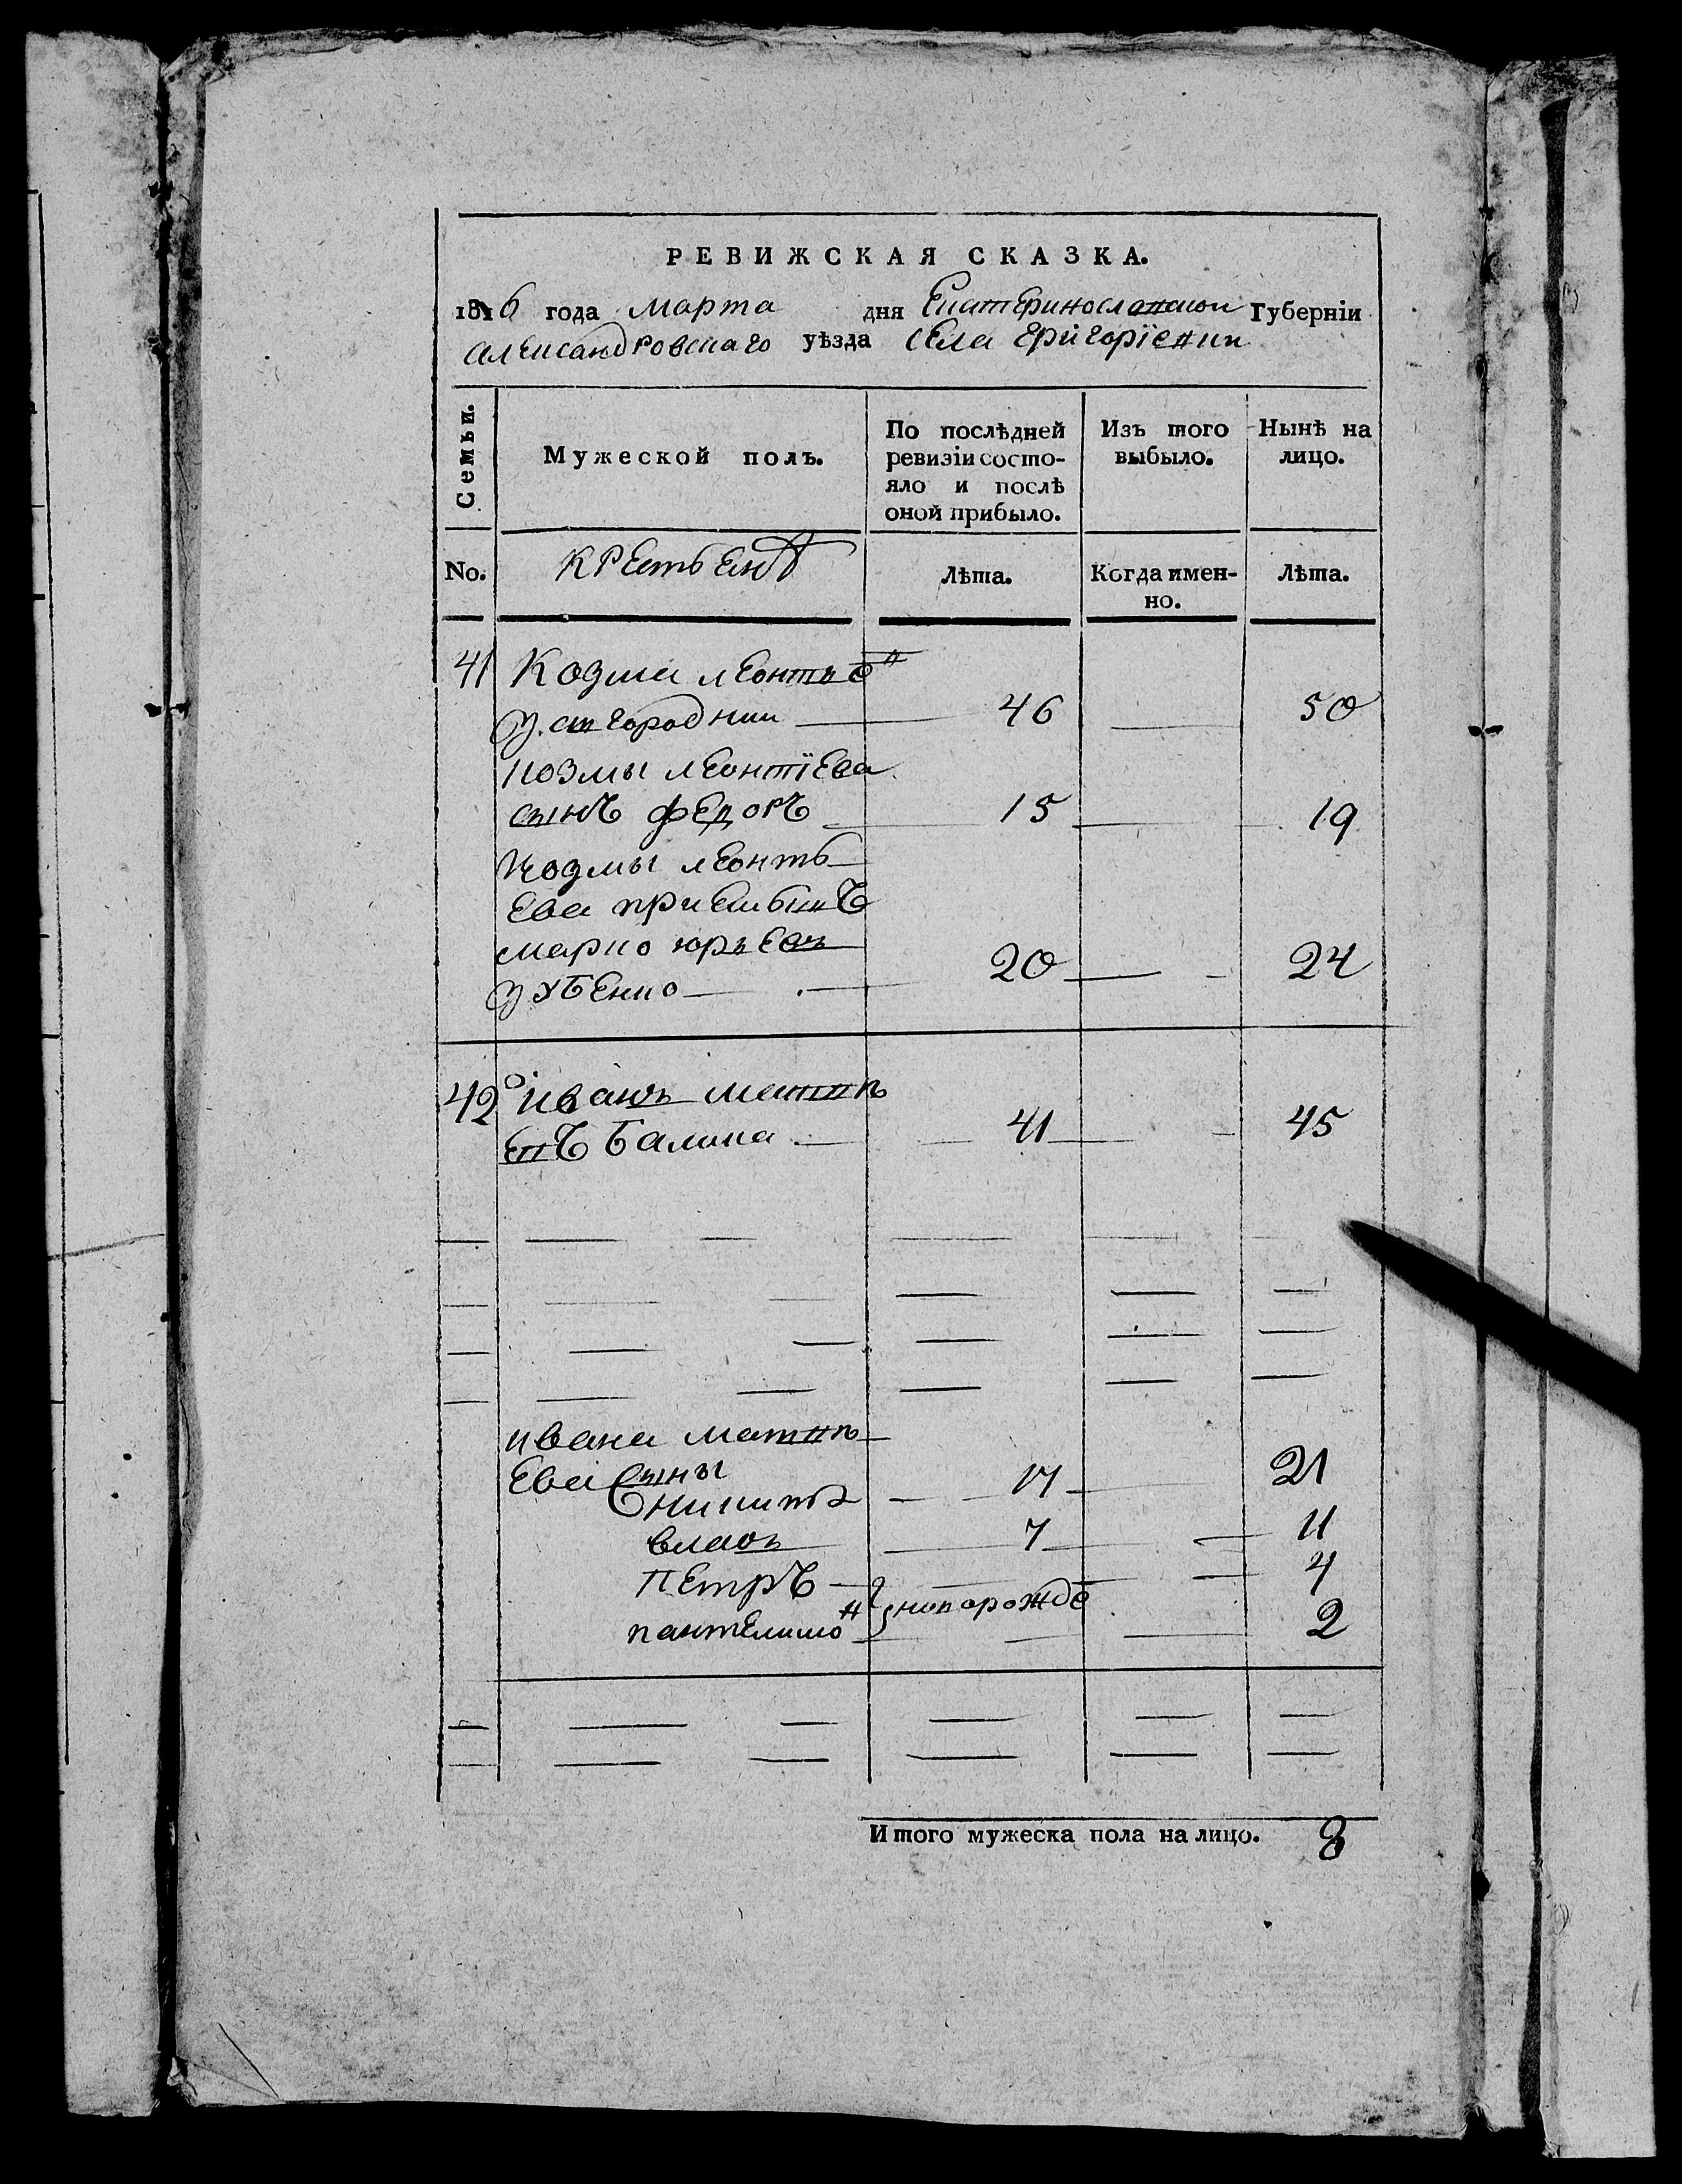 РЕВИЖСКАЯ СКАЗКА.
1816 года марта дня Екатеринославской Губерніи
Александровскаго уѣзда села Григоріевки
Семьи.
Мужеской полъ.
По послѣдней ревизіи состо-
яло и послѣ
оной прибыло.
Изъ того
выбыло.
Нынѣ на
лицо.
No.
Крестьенъ
Лѣта.
Когда имен-
но.
Лѣта.
41 Козма леонтье в
46 50
козмы леонтіева
сынъ федоръ 15 19
козмы леонть
ева приемышъ
марко юрьевъ 20 24
42 иванъ матвѣ
евъ Балика 41 45
ивана матвѣ
ева сыны
никита 17 21
власъ 7 11
петръ 4
пантелимо н новорожде 2
Итого мужеска пола на лицо. 8